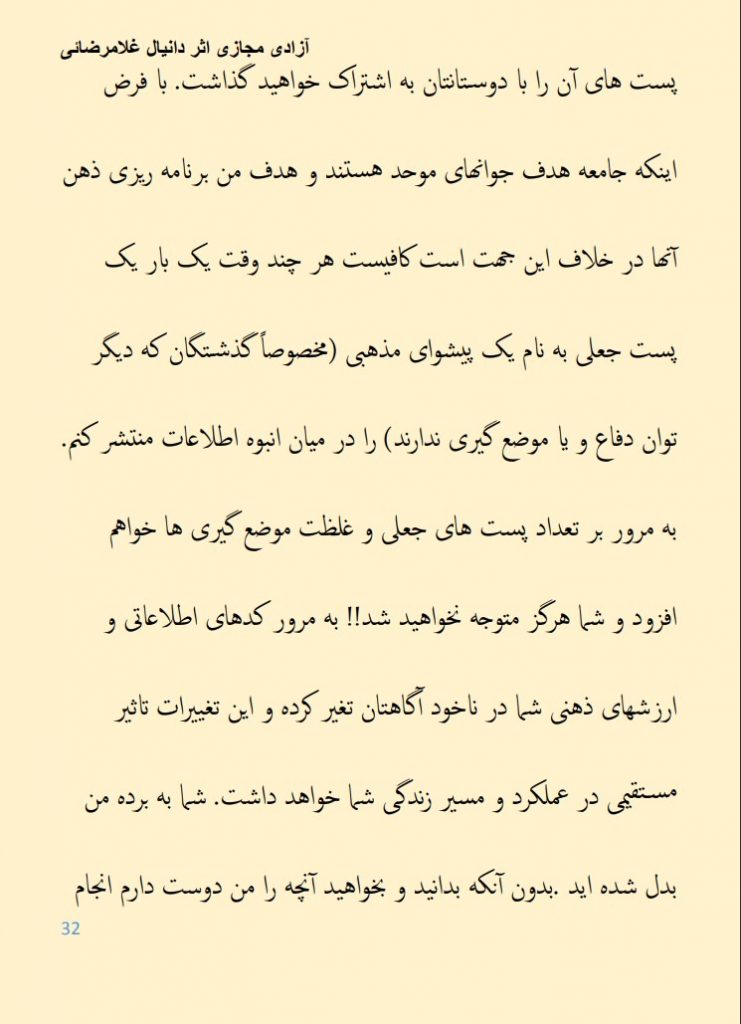 آزادی مجازی اثر دانیال غلامرضائی
پست های آن را با دوستانتان به اشتراک خواهید گذاشت. با فرض
اینکه جامعه هدف جوانهای موحد هستند و هدف من برنامه ریزی ذهن
آنها در خلاف این جهت است کافیست هر چند وقت یک بار یک
پست جعلی به نام یک پیشوای مذهبی (مخصوصاً گذشتگان که دیگر
توان دفاع و یا موضع گیری ندارند) را در میان انبوه اطلاعات منتشر کنم.
به مرور بر تعداد پست های جعلی و غلظت موضع گیری ها خواهم
افزود و شما هرگز متوجه نخواهید شد!! به مرور کدهای اطلاعاتی و
ارزشهای ذهنی شما در ناخود آگاهتان تغیر کرده و این تغییرات تاثیر
مستقیمی در عملکرد و مسیر زندگی شما خواهد داشت. شما به برده من
بدل شده اید .بدون آنکه بدانید و بخواهید آنچه را من دوست دارم انجام
32